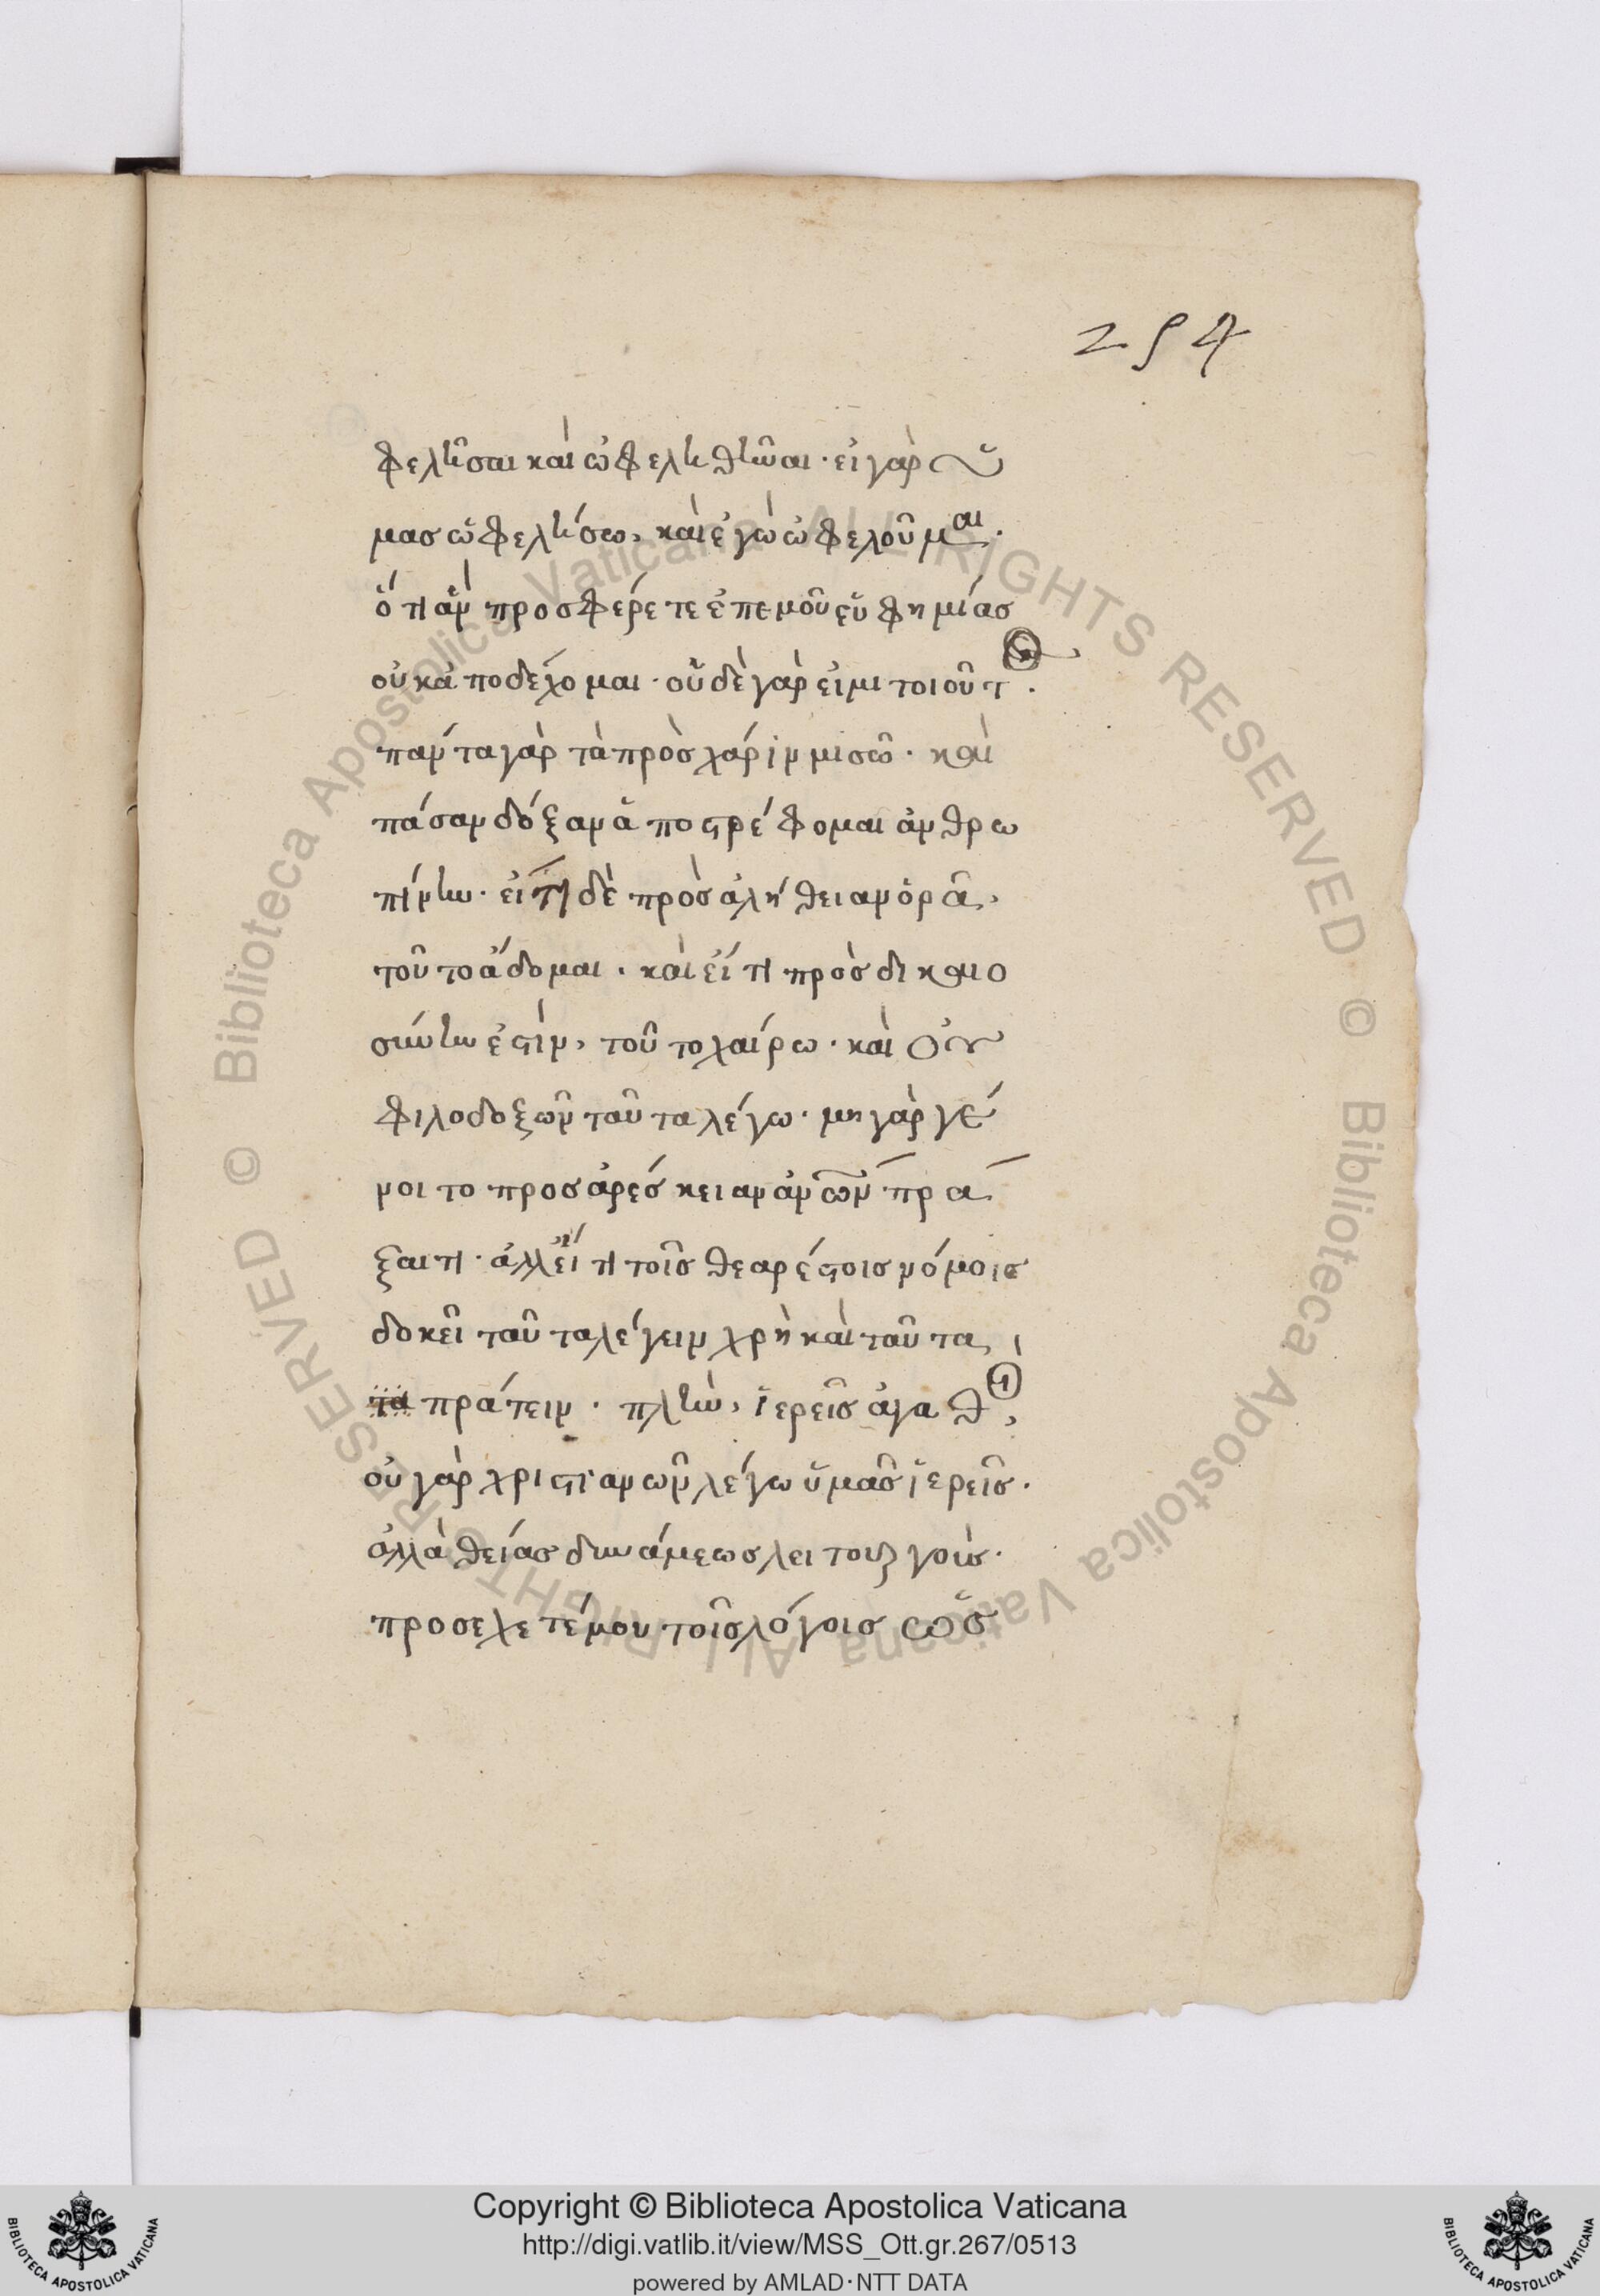 254
φελῆσαι καὶ ὠφεληθῆναι· εἰ γὰρ ὑ
μας ὠφελήσω, καὶ ἐγὼ ὠφελοῦμαι·
ὅτι ἂν προσφέρετε ἐπεμοῦ εὐφημίας
οὐκ ἀποδέχομαι· οὐδὲ γάρ εἰμι τοιοῦτος·
πάντα γὰρ τὰ πρὸς χάριν μισῶ· καὶ
πάσαν δόξαν ἀποστρέφομαι ἀνθρω
πίνην· εἴ τι δὲ πρὸς ἀλήθειαν ὁρᾶ,
τοῦτο ἄδομαι· καὶ εἴ τι πρὸς δικαιο
σύνην ἐστὶν, τοῦτο χαίρω· καὶ οὐ
φιλοδοξῶν ταῦτα λέγω· μη γὰρ γέ
νοι το προς ἀρέσκειαν ἀνῶν πρᾶ
ξαι τι· ἀλλ' εἴ τι τοῖς θεαρέστοις νόμοις
δοκεῖ ταῦτα λέγειν χρὴ καὶ ταῦτα
τα πράτειν· πλὴν, ἱερεῖς ἀγαθοὶ,
οὐ γὰρ χριστιανῶν λέγω ὑμᾶς ἱερεῖς·
ἀλλὰ θείας δυνάμεως λειτουργοὺς·
προσεχετέ μου τοῖς λόγοις ὡς
Copyright © Biblioteca Apostolica Vaticana
http://digi.vatlib.it/view/MSS_Ott.gr.267/0513
powered by AMLAD·NTT DATA
BIBLIOTECA APOSTOLICA VATICANA
BIBLIOTECA APOSTOLICA VATICANA
© Biblioteca Apostolica Vaticana ALL RIGHTS RESERVED
© Biblioteca Apostolica Vaticana ALL RIGHTS RESERVED